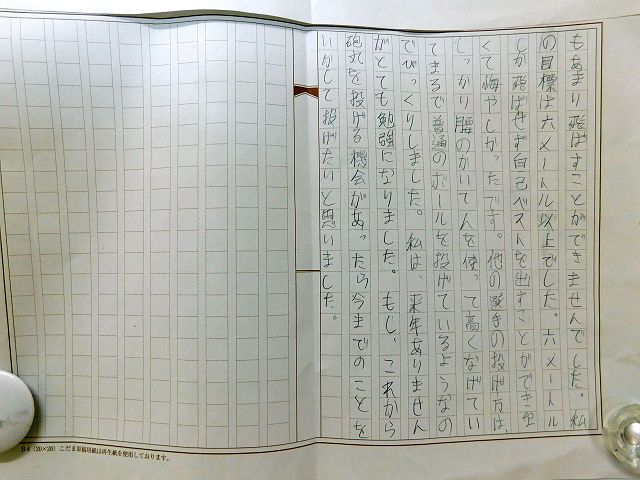 もあまり飛ばすことができませんでした。私
の目標は六メートル以上でした。六メートル
しか飛ばせず自己ベストを出すことができな
くて悔やしかったです。他の選手の投げ方は、
しっかり腰のかいてんを使って高くなげてい
てまるで普通のボールを投げているようなの
でびっくりしました。私は、来年ありません
がとても勉強になりました。もし、これから
砲丸を投げる機会があったら今までのことを
いかして投げたいと思いました。
B4(20×20)こだま原稿用紙は再生紙を使用しております。